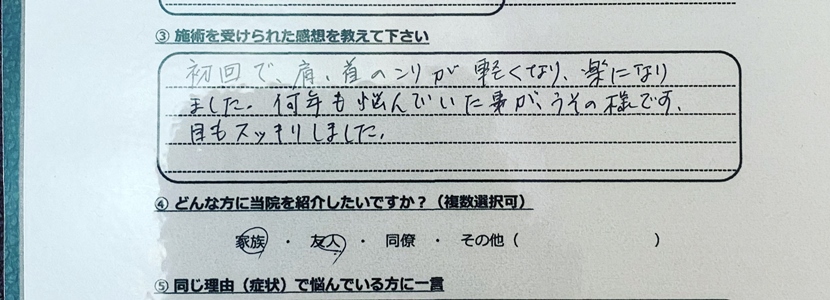 ③ 施術を受けられた感想を教えて下さい
初回で、肩、首のコリが軽くなり、楽になり
ました。何年も悩んでいた事が、うその様です。
目もスッキリしました。
④ どんな方に当院を紹介したいですか？（複数選択可）
家族 ・ 友人 ・ 同僚 ・ その他（ ）
⑤ 同じ理由（症状）で悩んでいる方に一言